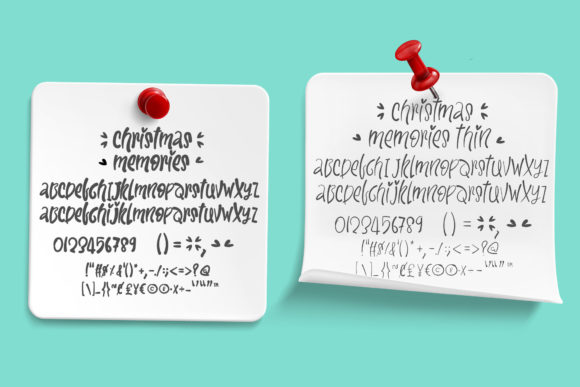 christmas
memories
abcdefghijklmnopqrstuvwxyz
abcdefghijklmnopqrstuvwxyz
0123456789 () = ,
!"#$%&'()*+,-/:;<=>?@
christmas
memories thin
abcdefghijklmnopqrstuvwxyz
abcdefghijklmnopqrstuvwxyz
0123456789 () = ,
!"#$%&'()*+,-/:;<=>?@